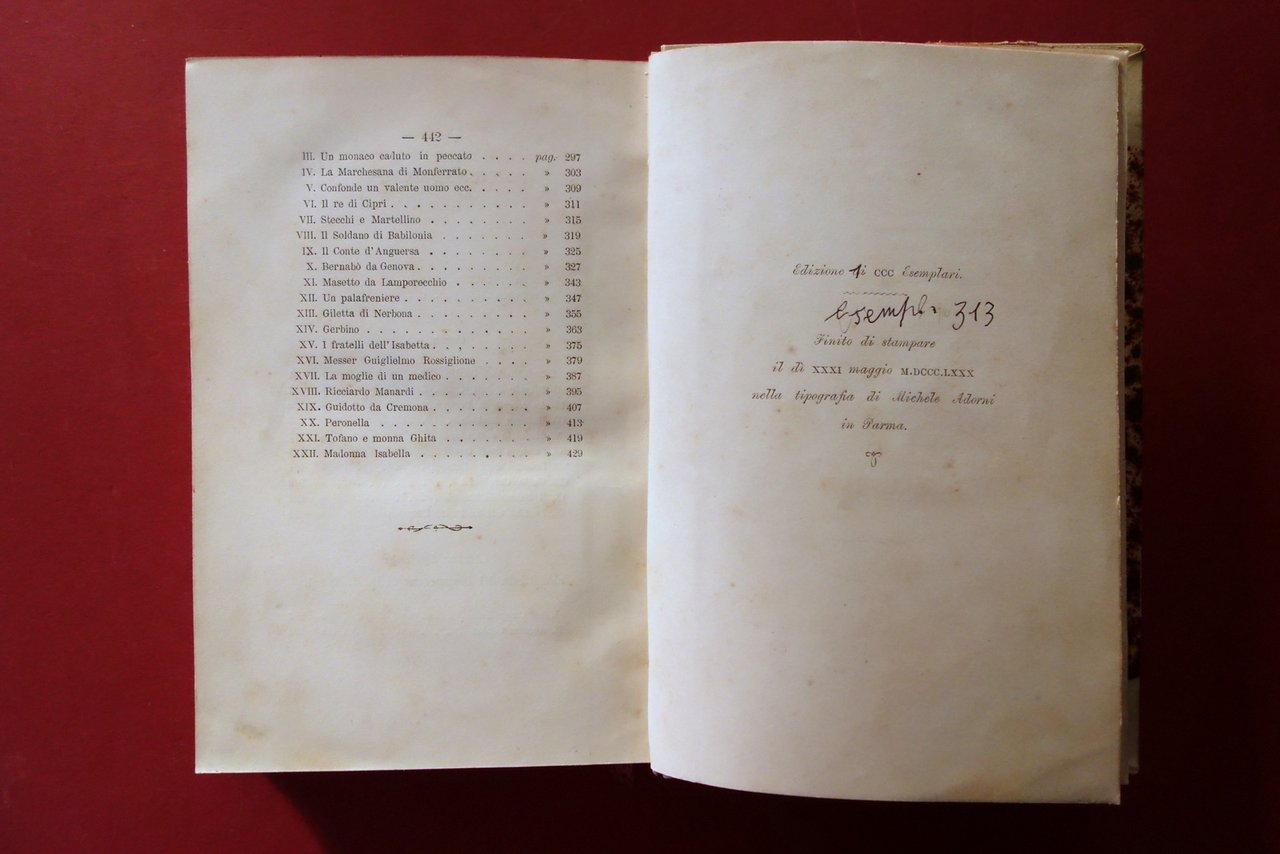 — 442 —
III. Un monaco caduto in peccato . . . . pag. 297
IV. La Marchesana di Monferrato . . . . » 303
V. Confonde un valente uomo ecc. . . . . » 309
VI. Il re di Cipri . . . . . . . . . . » 311
VII. Stecchi e Martellino . . . . . . . » 315
VIII. Il Soldano di Babilonia . . . . . . . » 319
IX. Il Conte d'Anguersa . . . . . . . . » 325
X. Bernabò da Genova . . . . . . . . » 327
XI. Masetto da Lamporecchio . . . . . . » 343
XII. Un palafreniere . . . . . . . . . » 347
XIII. Giletta di Nerbona . . . . . . . . » 355
XIV. Gerbino . . . . . . . . . . . . » 363
XV. I fratelli dell'Isabetta . . . . . . . » 375
XVI. Messer Guiglielmo Rossiglione . . . . » 379
XVII. La moglie di un medico . . . . . . » 387
XVIII. Ricciardo Manardi . . . . . . . . » 395
XIX. Guidotto da Cremona . . . . . . . » 407
XX. Peronella . . . . . . . . . . . » 413
XXI. Tofano e monna Ghita . . . . . . . » 419
XXII. Madonna Isabella . . . . . . . . » 429
Edizione di CCC Esemplari.
313
Finito di stampare
il dì XXXI maggio M.DCCC.LXXX
nella tipografia di Michele Adorni
in Parma.